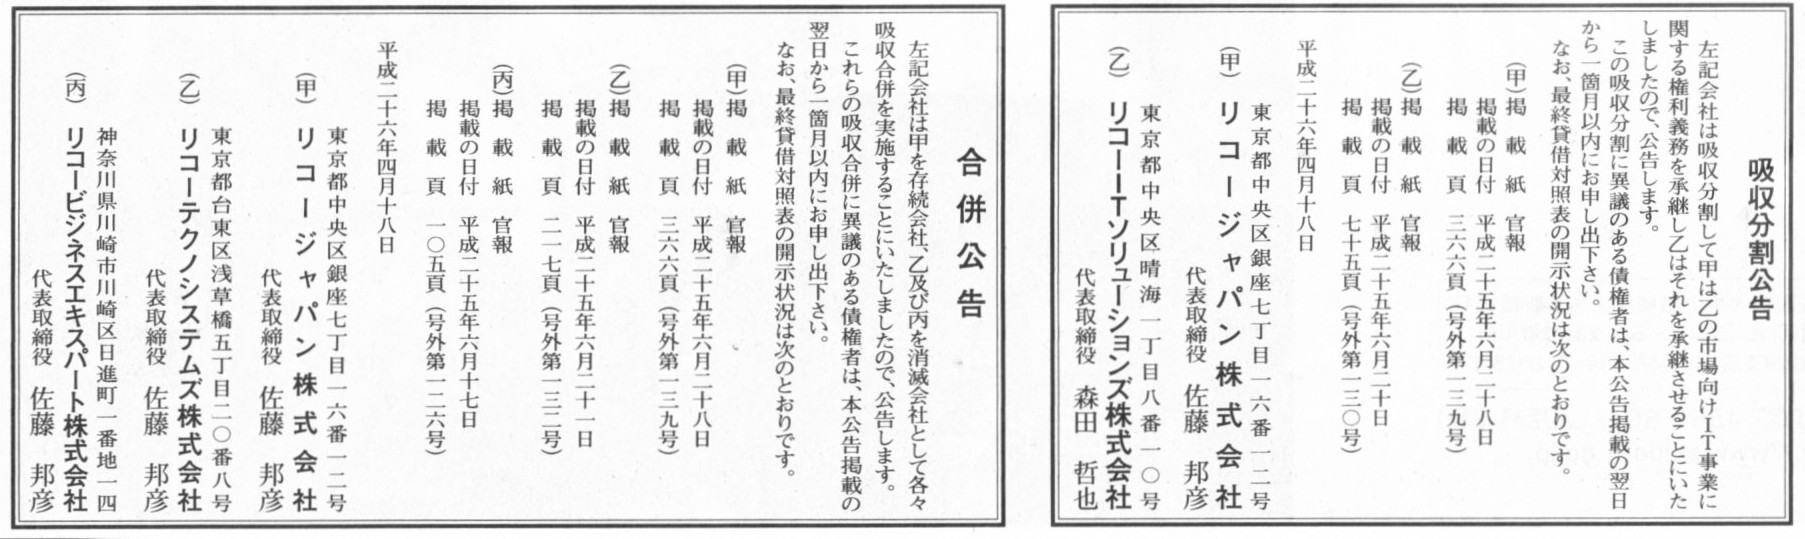 吸収分割公告
左記会社は吸収分割して甲は乙の市場向けIT事業に
関する権利義務を承継し乙はそれを承継させることにいた
しましたので、公告します。
この吸収分割に異議のある債権者は、本公告掲載の翌日
から一箇月以内にお申し出下さい。
なお、最終貸借対照表の開示状況は次のとおりです。
(甲)掲載紙 官報
掲載の日付 平成二十五年六月二十八日
掲載頁 三六六頁(号外第一三九号)
(乙)掲載紙 官報
掲載の日付 平成二十五年六月二十日
掲載頁 七十五頁(号外第一三〇号)
平成二十六年四月十八日
東京都中央区銀座七丁目一六番一二号
(甲) リコージャパン株式会社
代表取締役 佐藤 邦彦
東京都中央区晴海一丁目八番一〇号
(乙) リコーITソリューションズ株式会社
代表取締役 森田 哲也
合併公告
左記会社は甲を存続会社、乙及び丙を消滅会社として各々
吸収合併を実施することにいたしましたので、公告します。
これらの吸収合併に異議のある債権者は、本公告掲載の
翌日から一箇月以内にお申し出下さい。
なお、最終貸借対照表の開示状況は次のとおりです。
(甲)掲載紙 官報
掲載の日付 平成二十五年六月二十八日
掲載頁 三六六頁(号外第一三九号)
(乙)掲載紙 官報
掲載の日付 平成二十五年六月二十一日
掲載頁 二一七頁(号外第一三二号)
(丙)掲載紙 官報
掲載の日付 平成二十五年六月十七日
掲載頁 一〇五頁(号外第一二六号)
平成二十六年四月十八日
東京都中央区銀座七丁目一六番一二号
(甲) リコージャパン株式会社
代表取締役 佐藤 邦彦
東京都台東区浅草橋五丁目二〇番八号
(乙) リコーテクノシステムズ株式会社
代表取締役 佐藤 邦彦
神奈川県川崎市川崎区日進町一番地一四
(丙) リコービジネスエキスパート株式会社
代表取締役 佐藤 邦彦